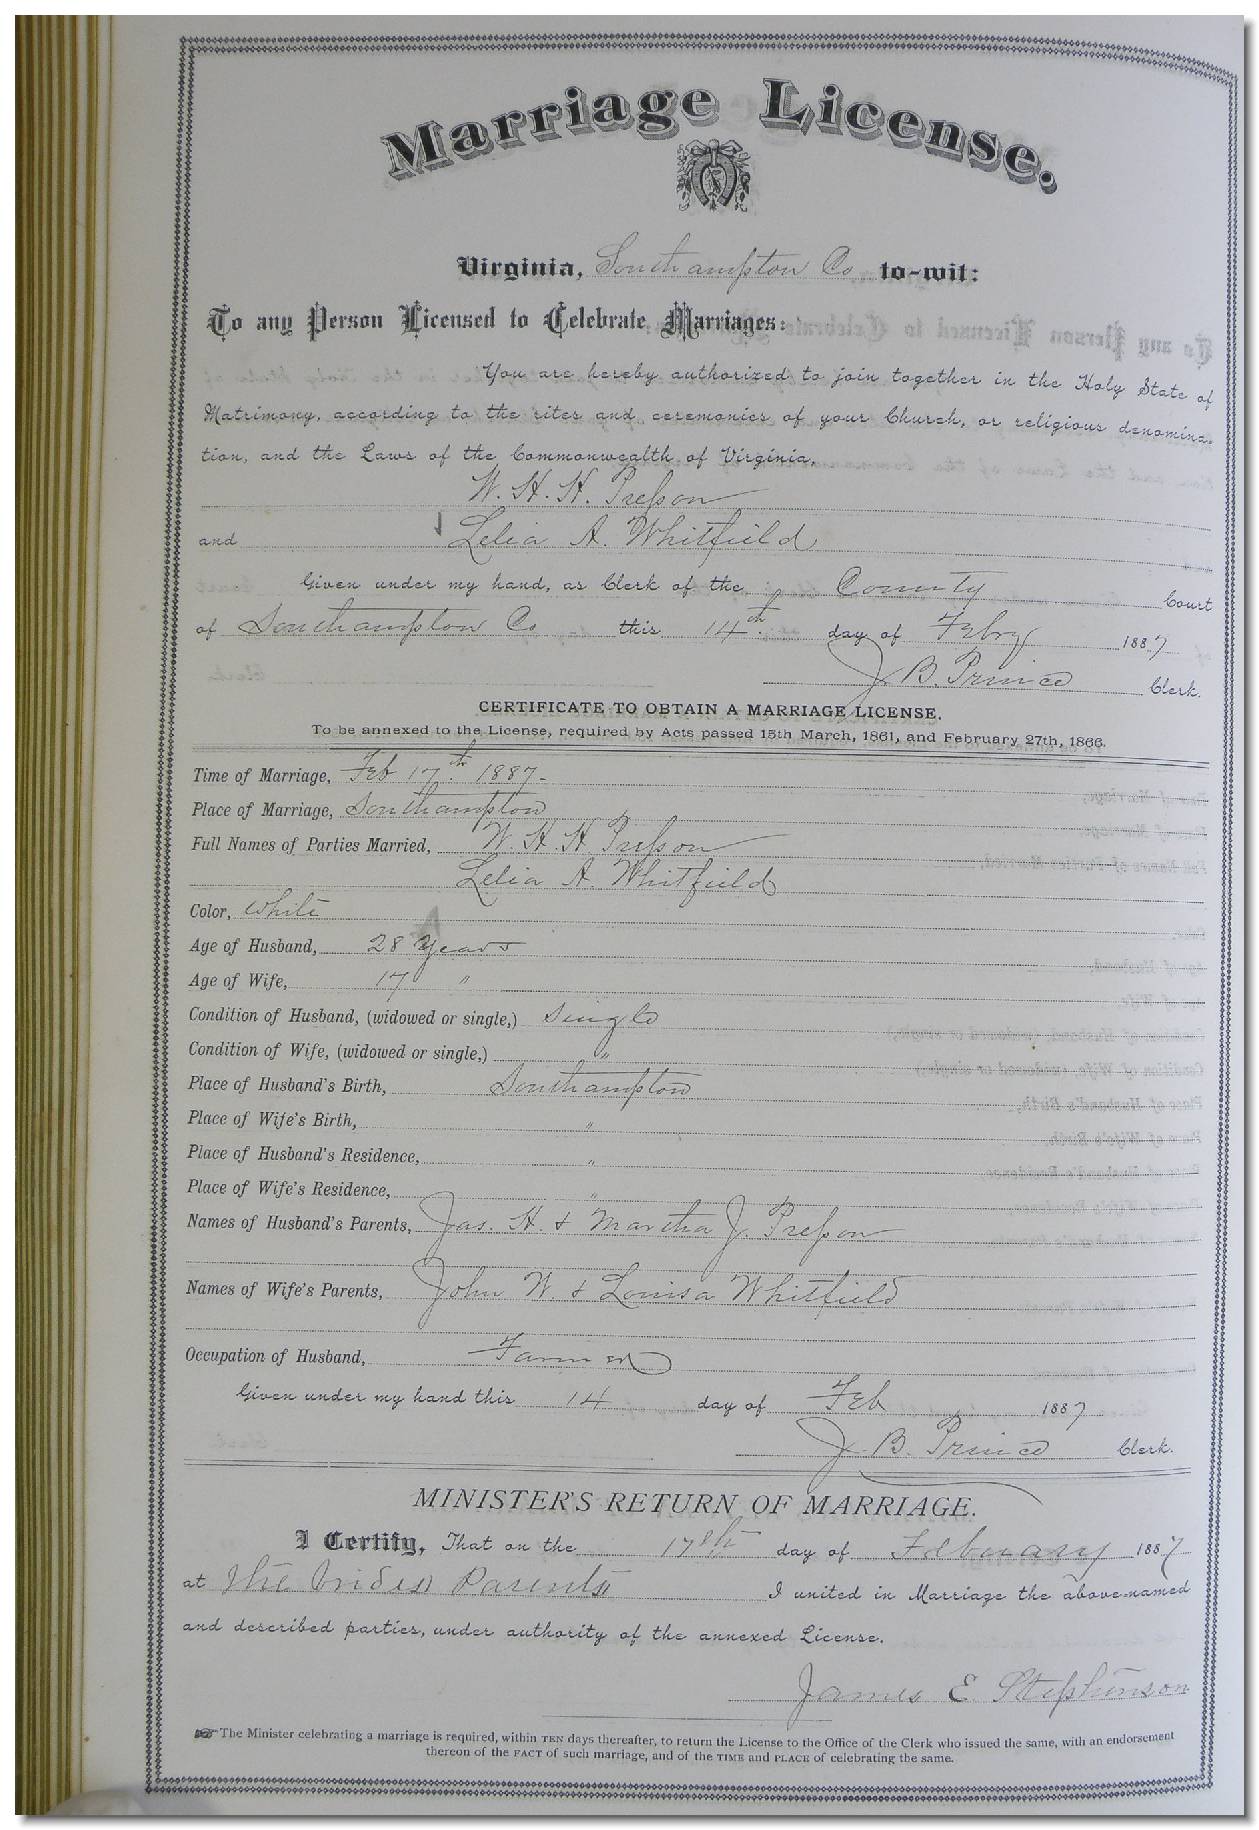 Marriage License.
Virginia, Southampton Co to-wit:
To any Person Licensed to Celebrate Marriages:
You are hereby authorized to join together in the Holy State of
Matrimony, according to the rites and ceremonies of your Church, or religious denomina-
tion, and the Laws of the Commonwealth of Virginia,
W. H. H. Presson
and Lelia A. Whitfield
Given under my hand, as Clerk of the County Court
of Southampton Co this 14th day of Feby 1887
J. B. Prince Clerk.
CERTIFICATE TO OBTAIN A MARRIAGE LICENSE.
To be annexed to the License, required by Acts passed 15th March, 1861, and February 27th, 1866.
Time of Marriage, Feb 17th 1887-
Place of Marriage, Southampton
Full Names of Parties Married, W. H. H. Presson
Lelia A. Whitfield
Color, White
Age of Husband, 28 Years
Age of Wife, 17 "
Condition of Husband, (widowed or single,) Single
Condition of Wife, (widowed or single,) "
Place of Husband's Birth, Southampton
Place of Wife's Birth, "
Place of Husband's Residence, "
Place of Wife's Residence, "
Names of Husband's Parents, Jas. H. & Martha J. Presson
Names of Wife's Parents, John W. & Louisa Whitfield
Occupation of Husband, Farmer
Given under my hand this 14 day of Feb 1887
J. B. Prince Clerk.
MINISTER'S RETURN OF MARRIAGE.
I Certify, That on the 17th day of February 1887
at the brides Parents I united in Marriage the above-named
and described parties, under authority of the annexed License.
James E Stephenson
The Minister celebrating a marriage is required, within TEN days thereafter, to return the License to the Office of the Clerk who issued the same, with an endorsement
thereon of the FACT of such marriage, and of the TIME and PLACE of celebrating the same.